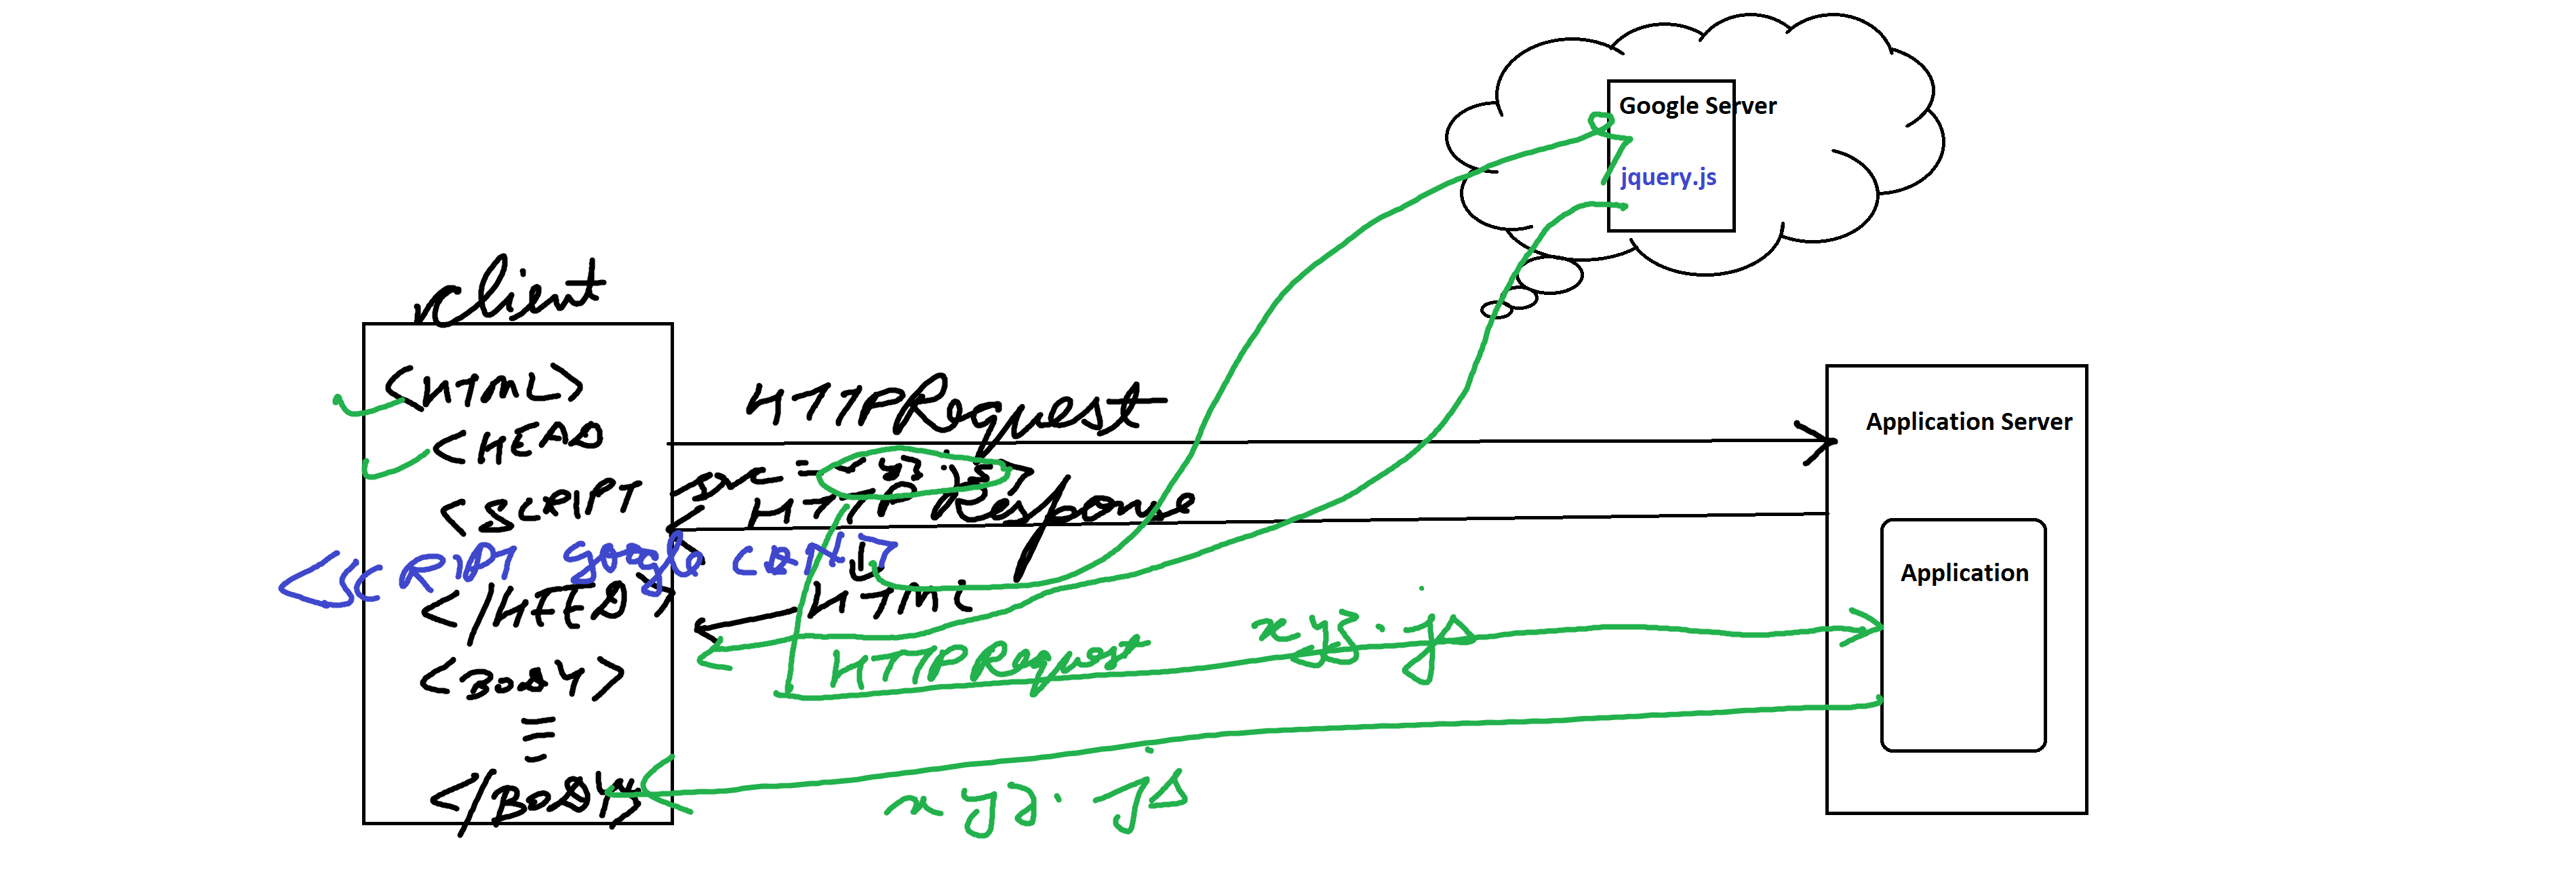 Google Server
jquery.js
Client
<HTML>
<HEAD
<SCRIPT src = xyz.js>
<SCRIPT google CDN>
</HEED>
<BODY>
</BODY>
HTTPRequest
HTTP Response
HTML
HTTPRequest xyz.js
xyz.js
Application Server
Application